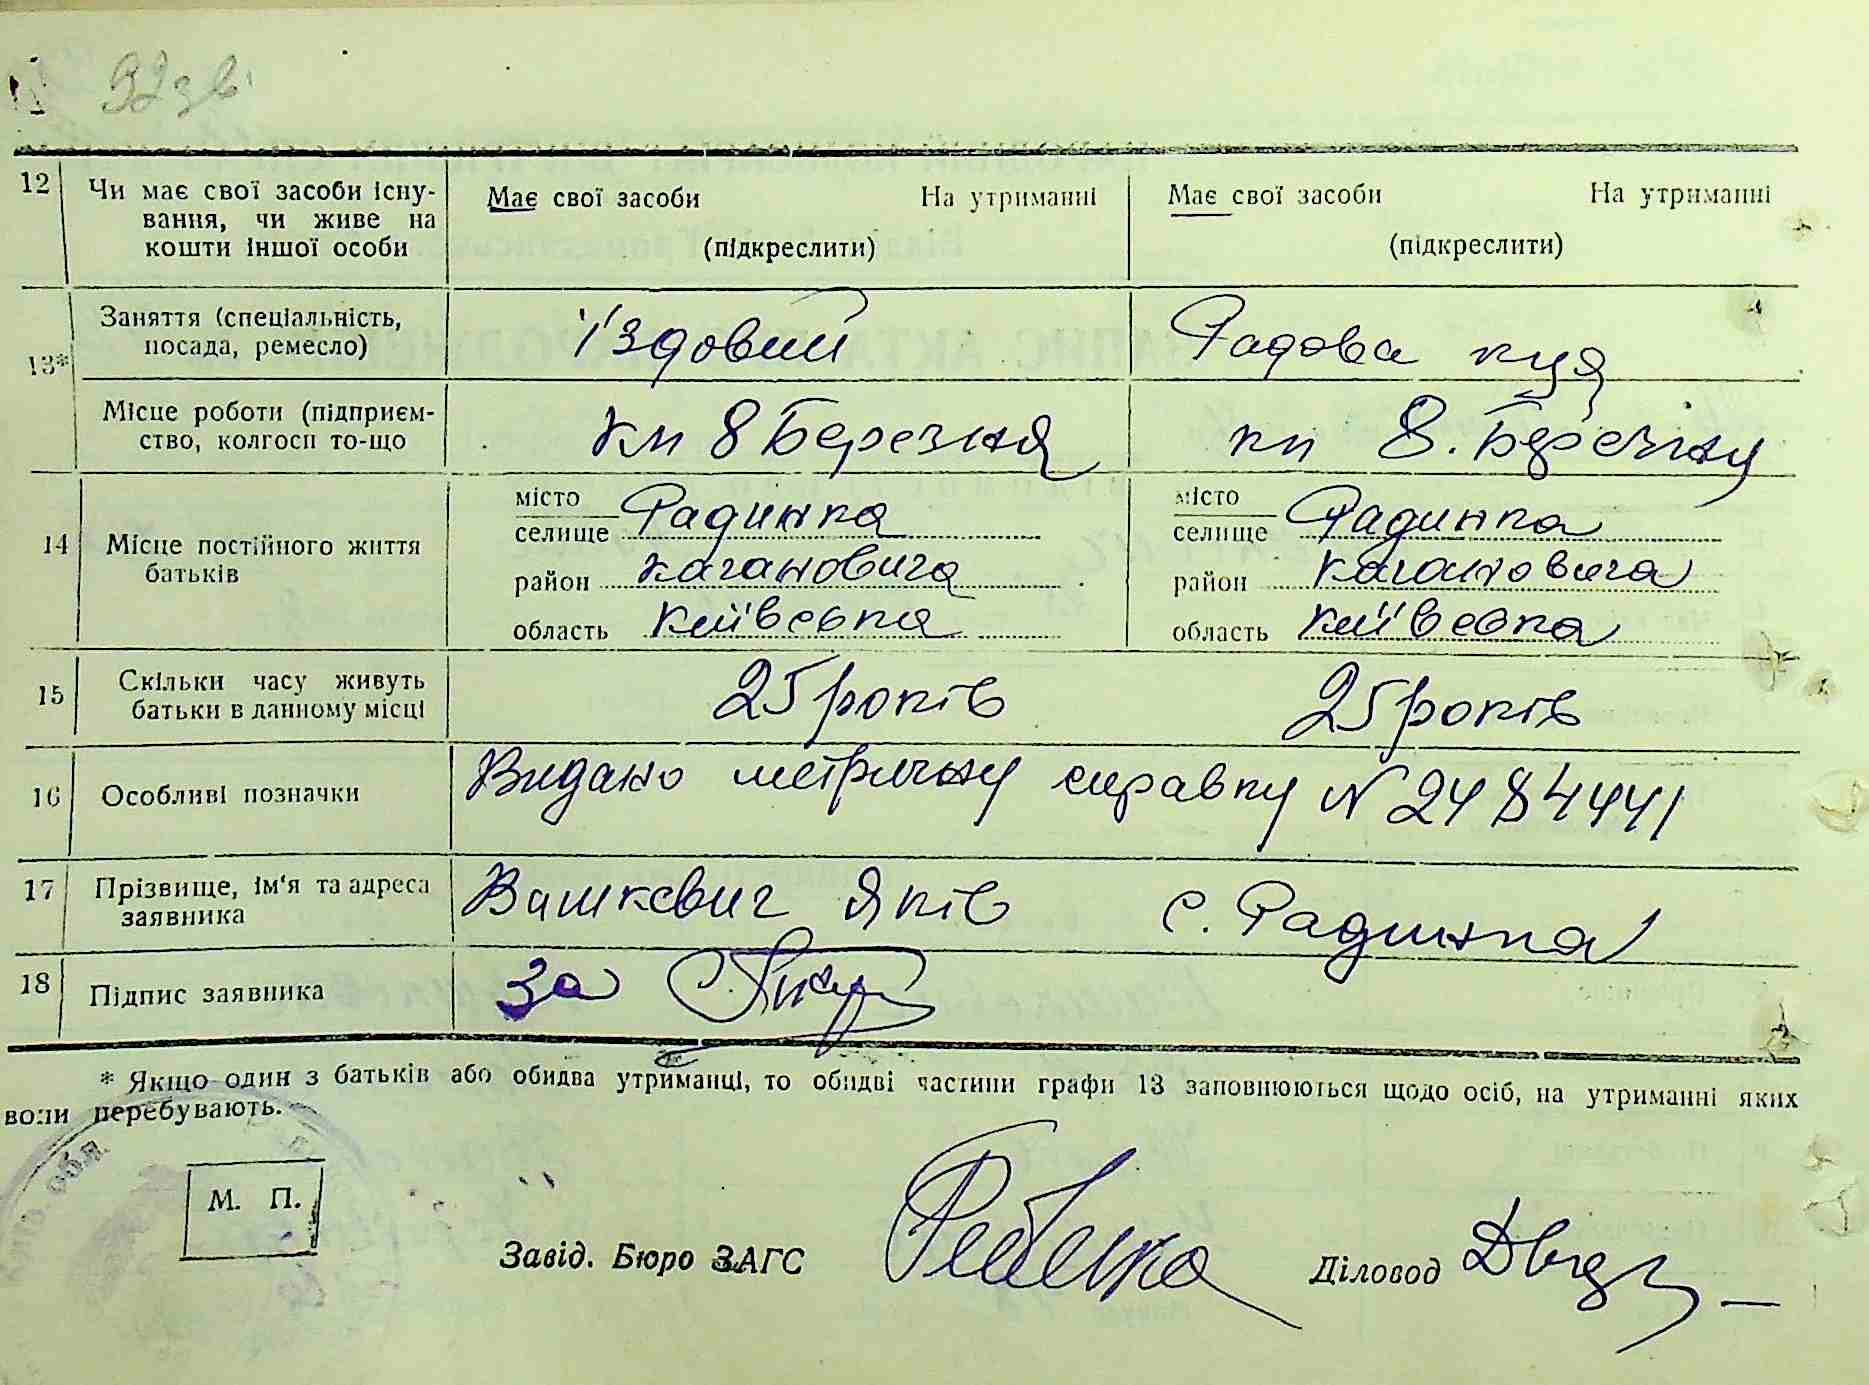 92зв
12
Чи має свої засоби існу-
вання, чи живе на
кошти іншої особи
Має свої засоби На утриманні
(підкреслити)
Має свої засоби На утриманні
(підкреслити)
13*
Заняття (спеціальність,
посада, ремесло)
їздовий
Радова кця
Місце роботи (підприєм-
ство, колгосп то-що
кп 8 Березня
кп 8. Березня
14
Місце постійного життя
батьків
місто
селище Радинка
район Кагановича
область Київська
місто
селище Радинка
район Кагановича
область Київська
15
Скільки часу живуть
батьки в данному місці
25 років
25 років
16
Особливі позначки
Видано метричну справку № 2484441
17
Прізвище, ім'я та адреса
заявника
Вашкевич Яків с. Радинка
18
Підпис заявника
За
* Якщо один з батьків або обидва утриманці, то обидві частини графи 13 заповнюються щодо осіб, на утриманні яких
вони перебувають.
обл.
М. П.
Завід. Бюро ЗАГС
Діловод